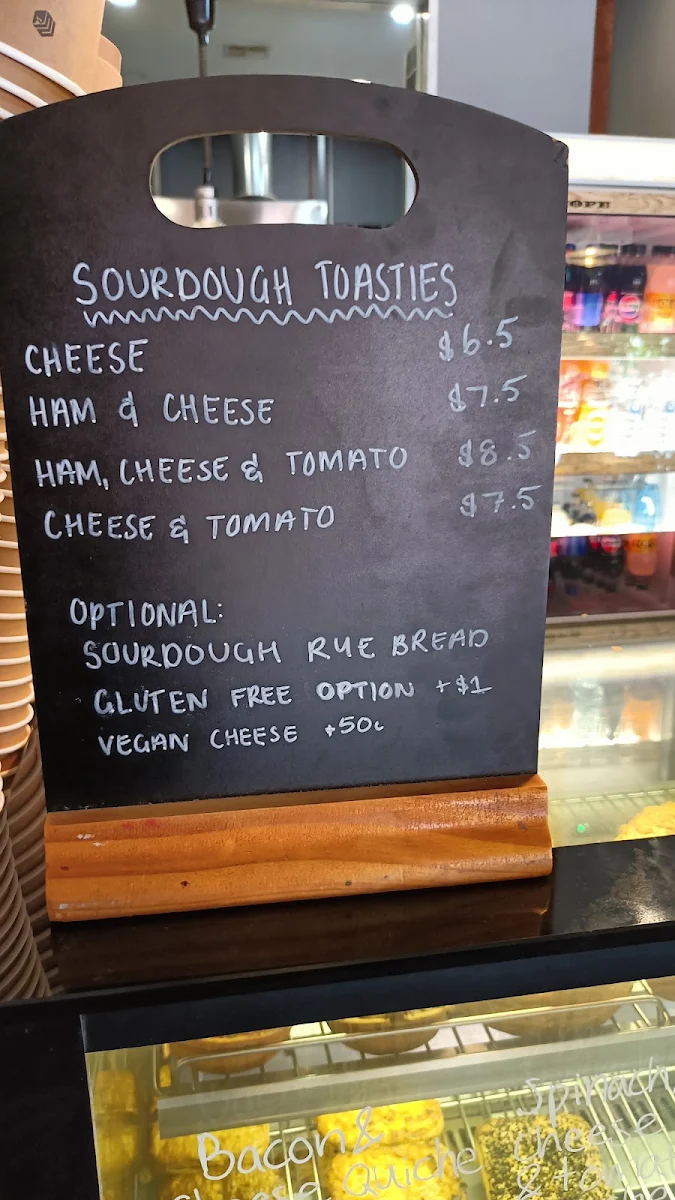 SOURDOUGH TOASTIES
CHEESE $6.5
HAM & CHEESE $7.5
HAM, CHEESE & TOMATO $8.5
CHEESE & TOMATO $7.5
OPTIONAL:
SOURDOUGH RYE BREAD
GLUTEN FREE OPTION +$1
VEGAN CHEESE +50c
Bacon &
Cheese Quiche
Spinach
cheese
&